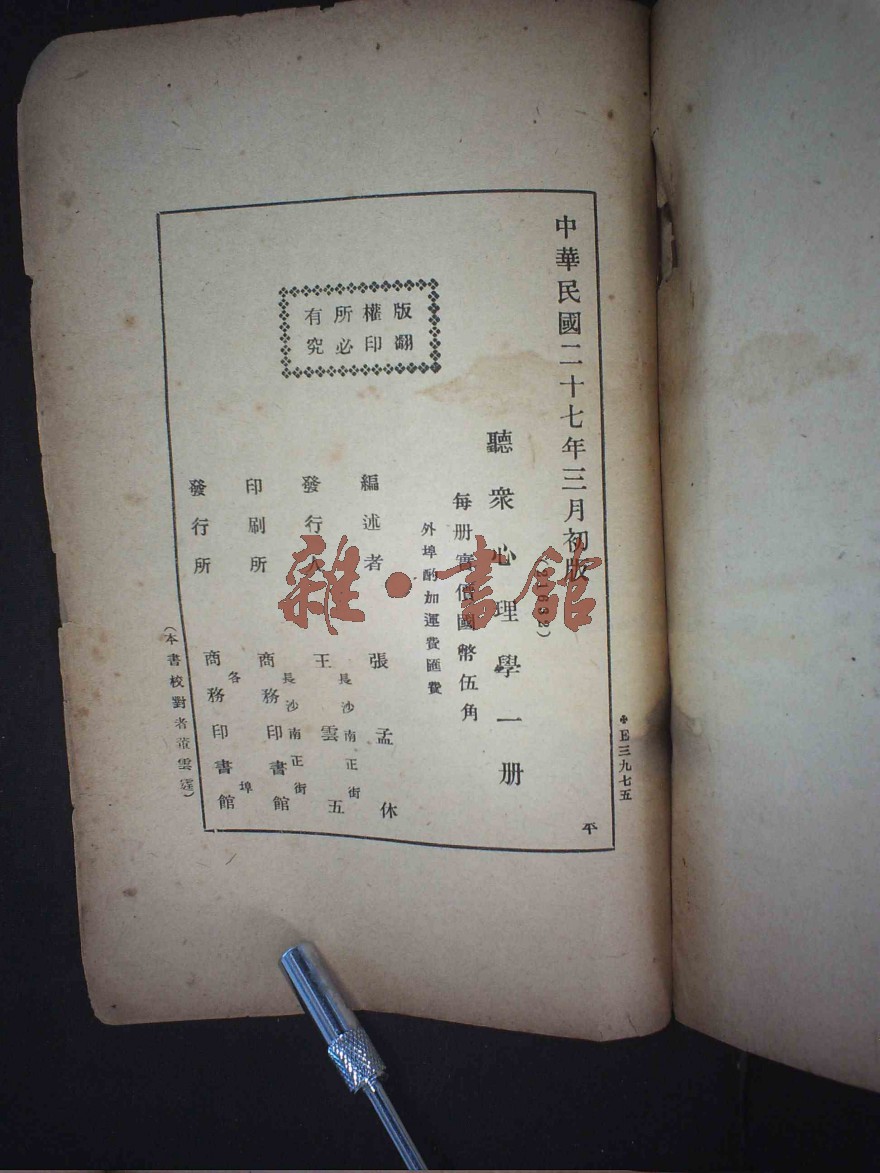 ❖E三九七五
中華民國二十七年三月初版
平
(21632)
聽衆心理學一册
每册實價國幣伍角
外埠酌加運費匯費
版權所有
翻印必究
編述者 張孟休
發行人 王雲五
長沙南正街
印刷所 商務印書館
長沙南正街
發行所 商務印書館
各埠
(本書校對者董雲霆)
雜·書館